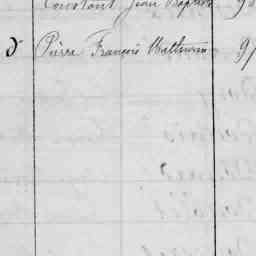 Constant Jean Baptiste
d° Pierre François Mathurin 9